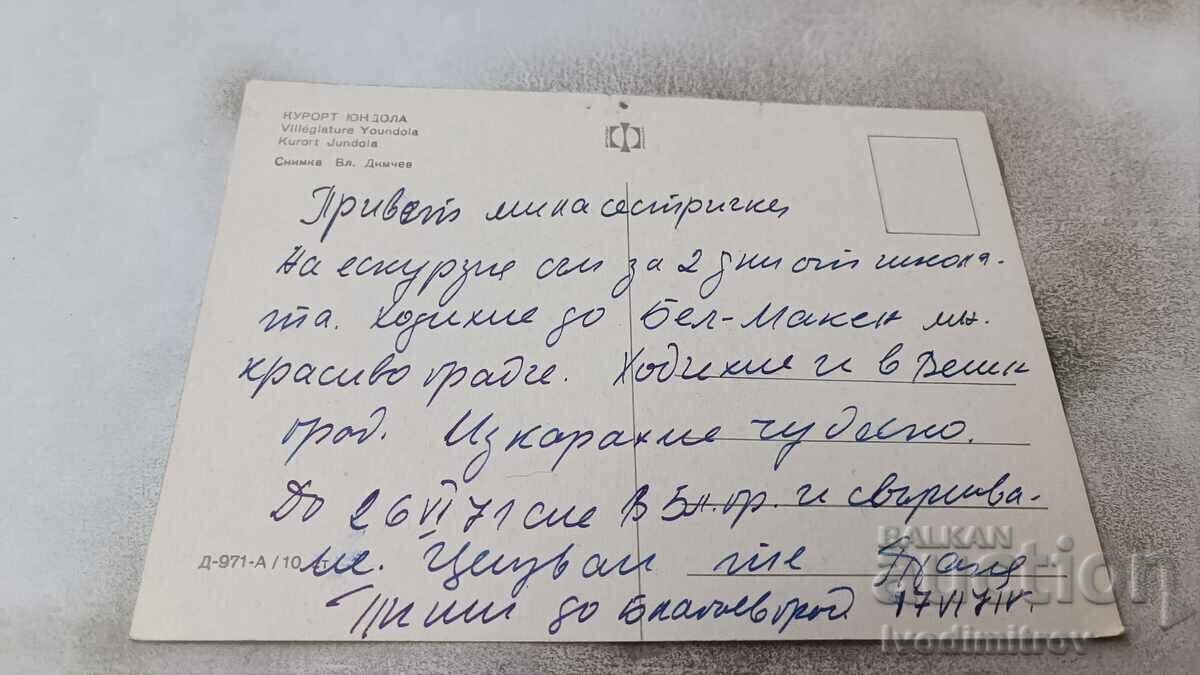 КУРОРТ ЮНДОЛА
Villégiature Youndola
Kurort Jundola
Снимка Вл. Димчев
Привет мила сестричке
На ескурзие съм за 2 дни от школа-
та. Ходихме до Бел-Макен мн.
красиво градче. Ходихме и в Велин
град. Изкарахме чудесно.
До 26 VI 71 сме в Бл.гр. и свършва-
ме. Целувам те Таня
Пиши до Благоевград 17 VI 71 г.
Д-971-А/10 ст.
BALKAN
auction
Ivodimitrov